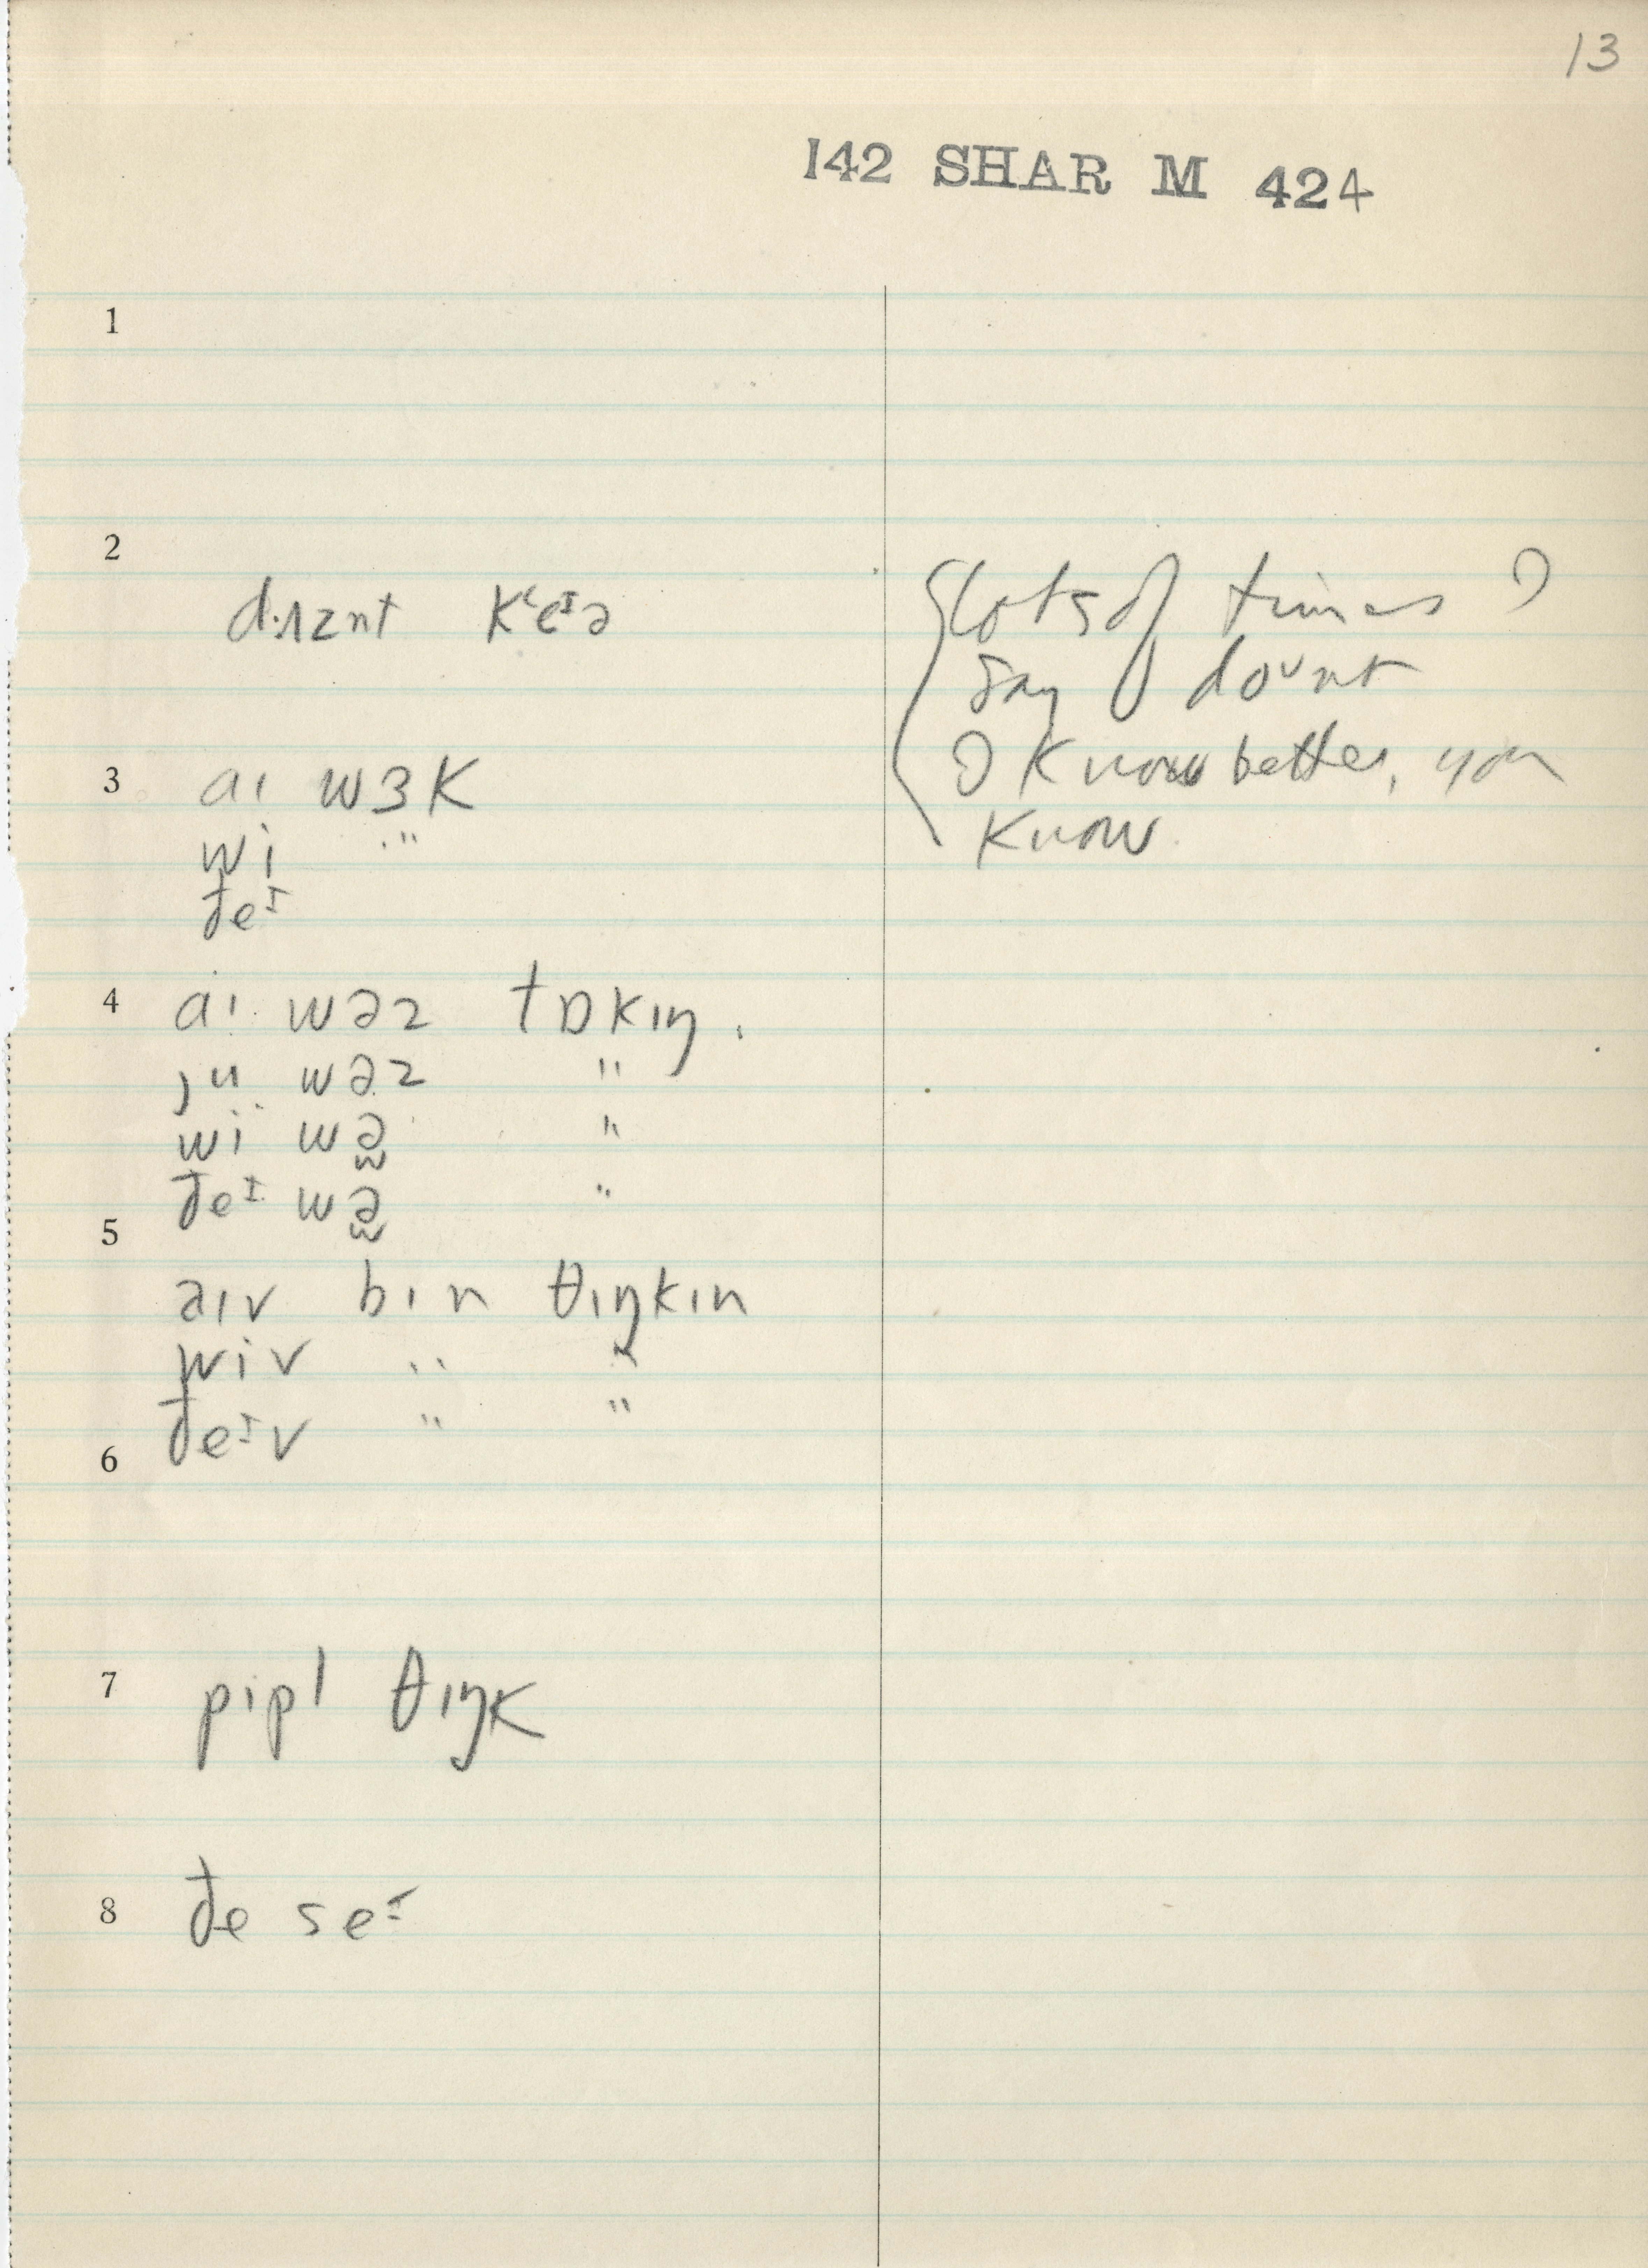 13
142 SHAR M 424
1
2
dʌznt kʻɛᴵə
lots of times I
say doᵘnt
I know better, you
know
3 aɪ wɜk
wi "
đeᴵ
4 aɪ wəz tɒkɪŋ.
ju wəz "
wi wə̫ "
đeᴵ wə̫ "
5
aɪv bɪn θɪŋkɪn
wiv " "
đeᴵv " "
6
7 pipl θɪŋk
8 đe seᴵ